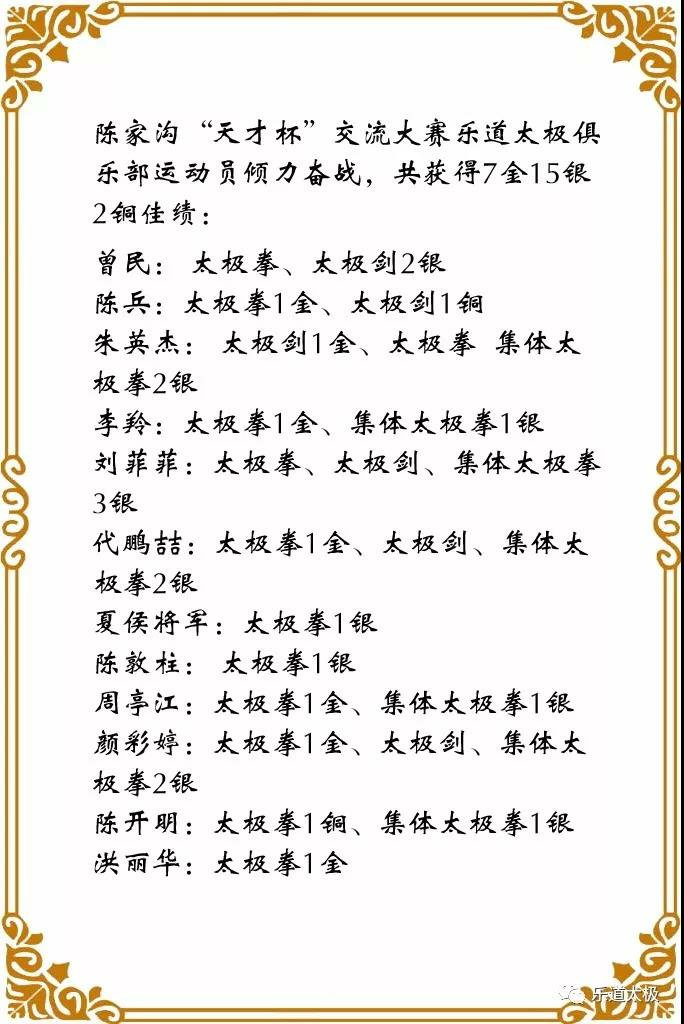 陈家沟“天才杯”交流大赛乐道太极俱
乐部运动员倾力奋战，共获得7金15银
2铜佳绩：
曾民： 太极拳、太极剑2银
陈兵：太极拳1金、太极剑1铜
朱英杰： 太极剑1金、太极拳 集体太
极拳2银
李羚：太极拳1金、集体太极拳1银
刘菲菲：太极拳、太极剑、集体太极拳
3银
代鹏喆：太极拳1金、太极剑、集体太
极拳2银
夏侯将军：太极拳1银
陈敦柱： 太极拳1银
周亭江：太极拳1金、集体太极拳1银
颜彩婷：太极拳1金、太极剑、集体太
极拳2银
陈开明：太极拳1铜、集体太极拳1银
洪丽华：太极拳1金
乐道太极